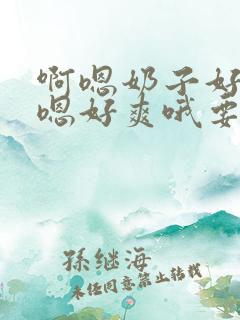 啊嗯奶子好
嗯好爽哦要
孙继海
未经同意禁止转载